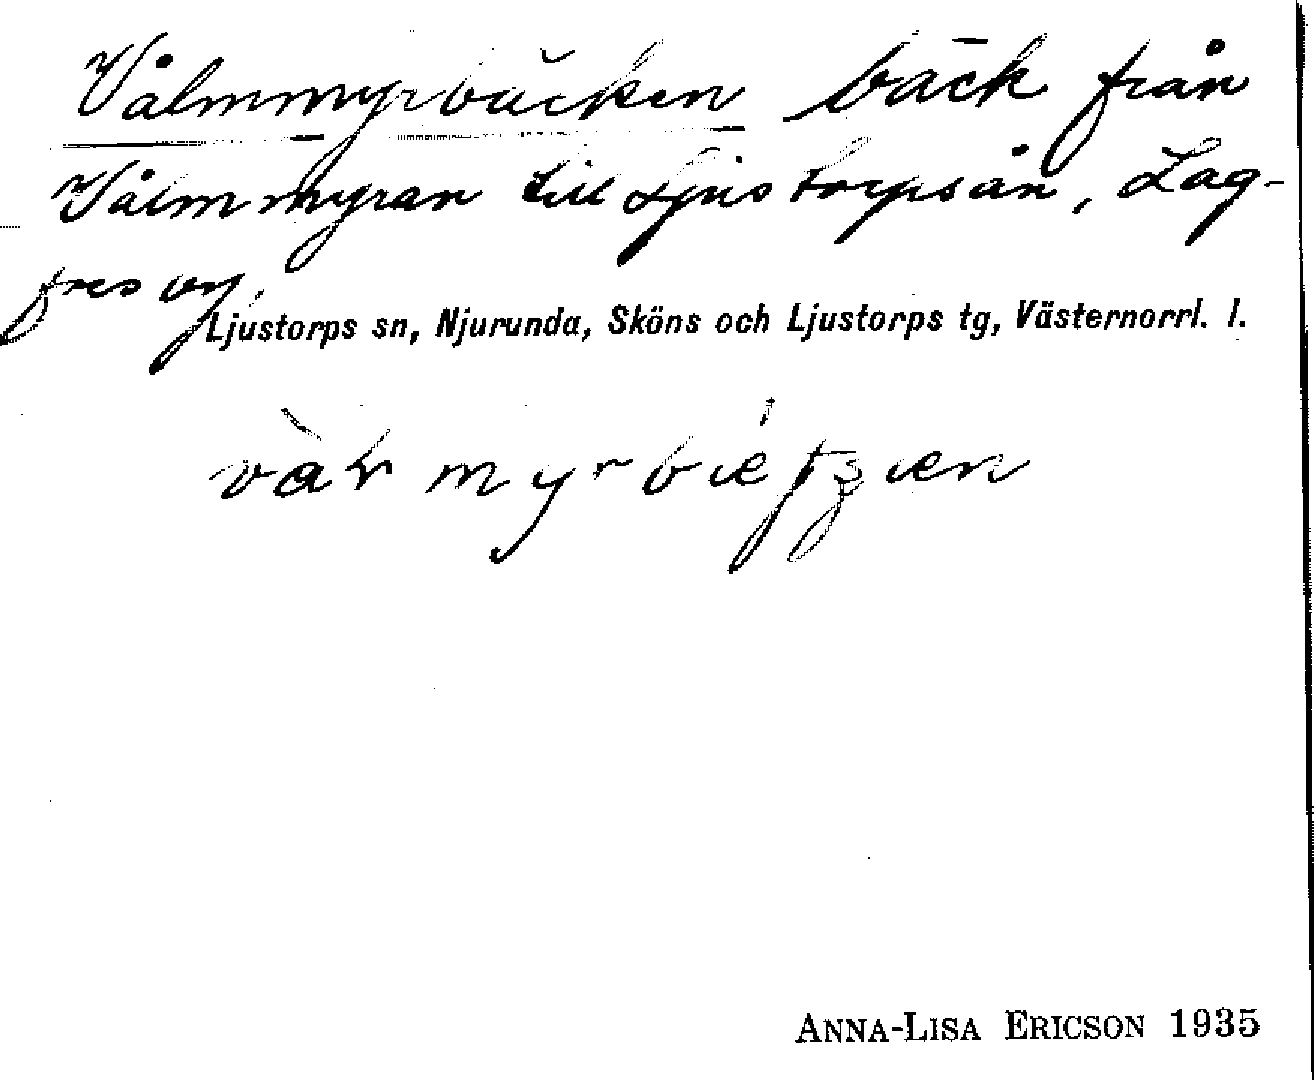 Vålmmyrbäcken bäck från
Vålmmyran till Ljustorpsån, Lag-
fors by.
Ljustorps sn, Njurunda, Sköns och Ljustorps tg, Västernorrl. l.
ANNA-LISA ERICSON 1935